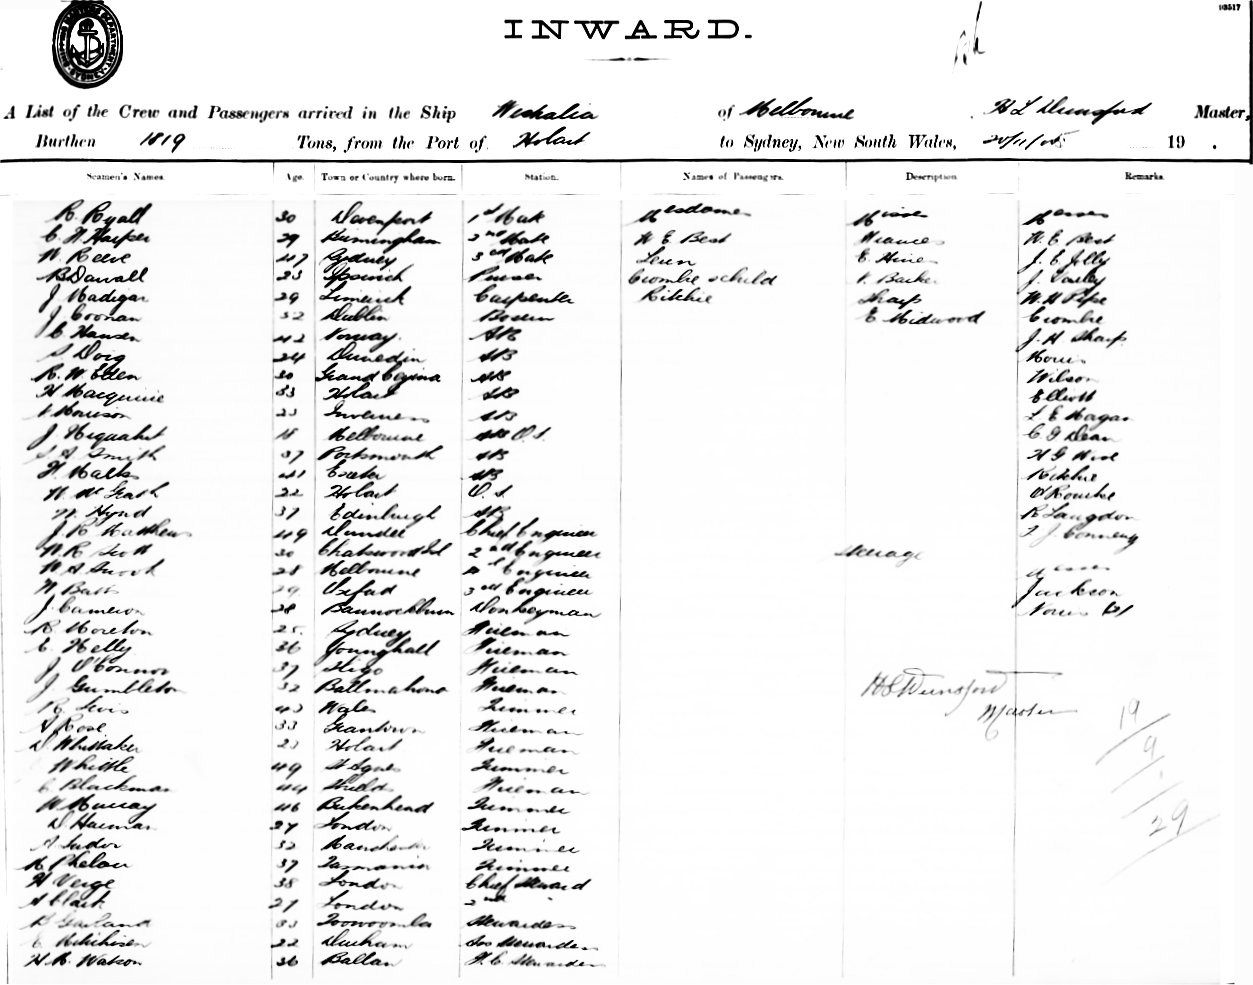 93517
INWARD.
A List of the Crew and Passengers arrived in the Ship Westralia of Melbourne H L Dunsford Master,
Burthen 1819 Tons, from the Port of Hobart to Sydney, New South Wales, 20/11/05 19 .
Seamen's Names. Age. Town or Country where born. Station. Names of Passengers. Description Remarks.
R. Ryall 30 Devenport 1st Mate Mesdames Misses Messrs
C. W. Harper 29 Birmingham 2nd Mate W E Best Frances W. E. Best
W. Reeve 47 Sydney 3rd Mate E. Hines J. E. Jolly
R Dawall 23 Ipswich Purser Crombie & child V. Barker J.
J Madigan 29 Limerick Carpenter Ritchie Sharp W. H Pope
J Coonan 32 Dublin Bosun E Midwood Crombie
C Hansen 42 Norway AB J. H Sharp
S Doig 24 Dunedin AB Norris
R. W Elden 30 AB Wilson
H Macquirie 33 Hobart AB Elliott
V Morrison 23 Inverness AB L E Hagan
J 18 Melbourne O.S. C G Dean
S. A. Smith 37 Portsmouth AB H G Wise
H. 41 Exeter AB Ritchie
W. McGrath 22 Hobart O. S O'Rourke
Hynd 37 Edinburgh AB R Langdon
J. R. Matthews 49 Dundee Chief Engineer J.
W. R Scott 30 2nd Engineer Steerage
W A Snook 28 Melbourne Engineer Messrs
W Batts 29 Oxford 3rd Engineer Jackson
J. Cameron 28 Bannockburn Donkeyman Norris (2)
R Moreton 25 Sydney Fireman
C. Kelly 36 Younghall Fireman
J O'Connor 37 Sligo Fireman
J Gumbleton 32 Fireman H L Dunsford
R. Lewis 43 Wales Trimmer Master
19
A Rose 33 Grantown Fireman
D Whittaker 23 Hobart Fireman
9
Whittle 49 St Agnes Trimmer
C Blackman 44 Shields Fireman
W Murray 46 Birkenhead Trimmer
29
D Harman 27 London Trimmer
A Tudor 32 Manchester Trimmer
M Phelan 37 Tasmania Trimmer
H Verge 38 London Chief Steward
A Clark 27 London 2nd "
B Garland 33 Toowoomba Stewardess
E 22 Durham Stewardess
H. R. Watson 36 Ballan F. C Stewardess